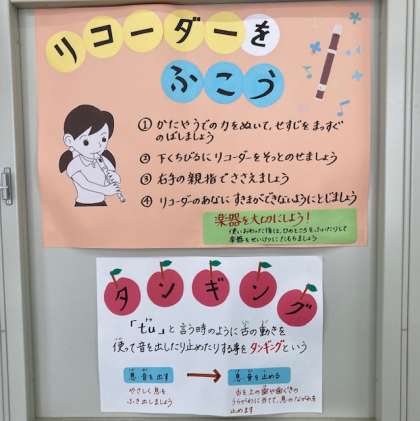 リコーダーを
ふこう
① かたやうでの力をぬいて、せすじをまっすぐ
のばしましょう
② 下くちびるにリコーダーをそっとのせましょう
③ 右手の親指でささえましょう
④ リコーダーのあなにすきまができないようにとじましょう
楽器を大切にしよう！
使いおわった後は、
楽器をせいけつにたもちましょう
タンギング
「tu」と言う時のように舌の動きを
使って音を出したり止めたりする事をタンギングという
息 音を出す → 息 音を止める
やさしく息を
ふき出しましょう
舌を上の歯や歯ぐきの
うらがわに当てて、息のながれを
止めます